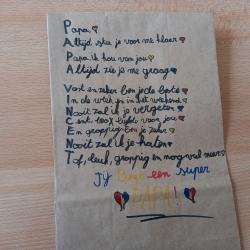 Papa
Altijd sta je voor me klaar
Papa ik hou van jou
Altijd zie je me graag
Vast en zeker ben je de beste
In de week en in het weekend
Nooit zal ik je vergeten
Cent, 100% liefde voor jou
En grappig ben je zeker
Nooit zal ik je haten
Tof, leuk, grappig en nog veel meer
Jij bent een super
PAPA!